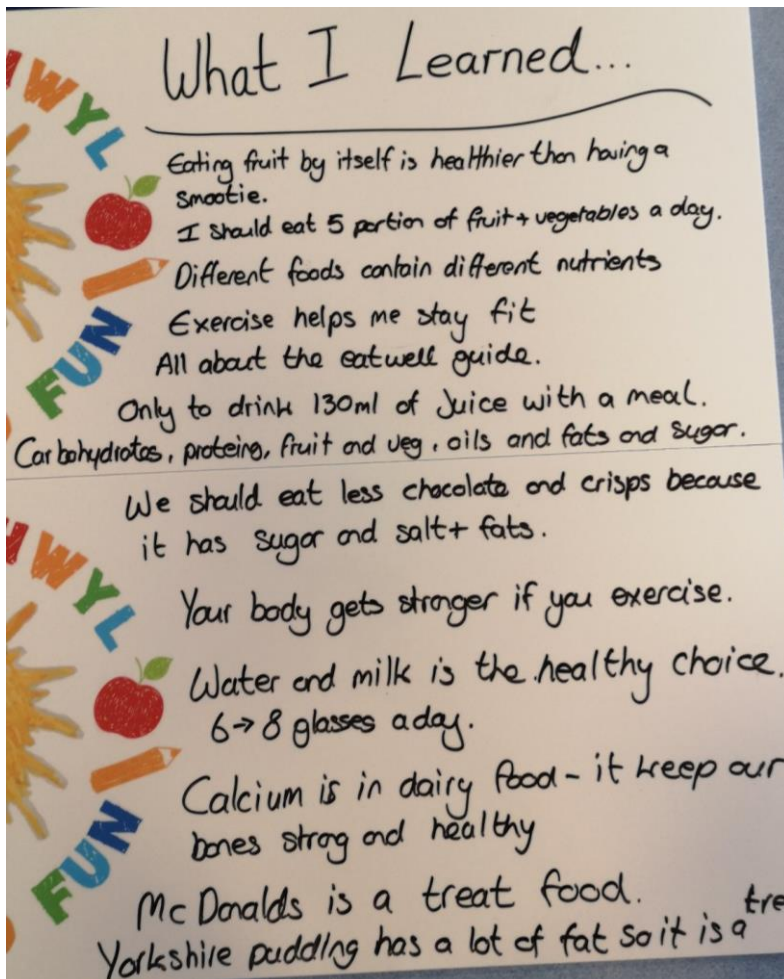 What I Learned...
HWYL
Eating fruit by itself is healthier than having a
smootie.
I should eat 5 portion of fruit + vegetables a day.
Different foods contain different nutrients
Exercise helps me stay fit
FUN
All about the eatwell guide.
Only to drink 130ml of Juice with a meal.
Carbohydrates, proteins, fruit and veg, oils and fats and sugar.
We should eat less chocolate and crisps because
it has sugar and salt + fats.
HWYL
Your body gets stronger if you exercise.
Water and milk is the healthy choice.
6 → 8 glasses a day.
Calcium is in dairy food - it kreep our
bones strog and healthy
FUN
McDonalds is a treat food.
Yorkshire pudding has a lot of fat so it is a